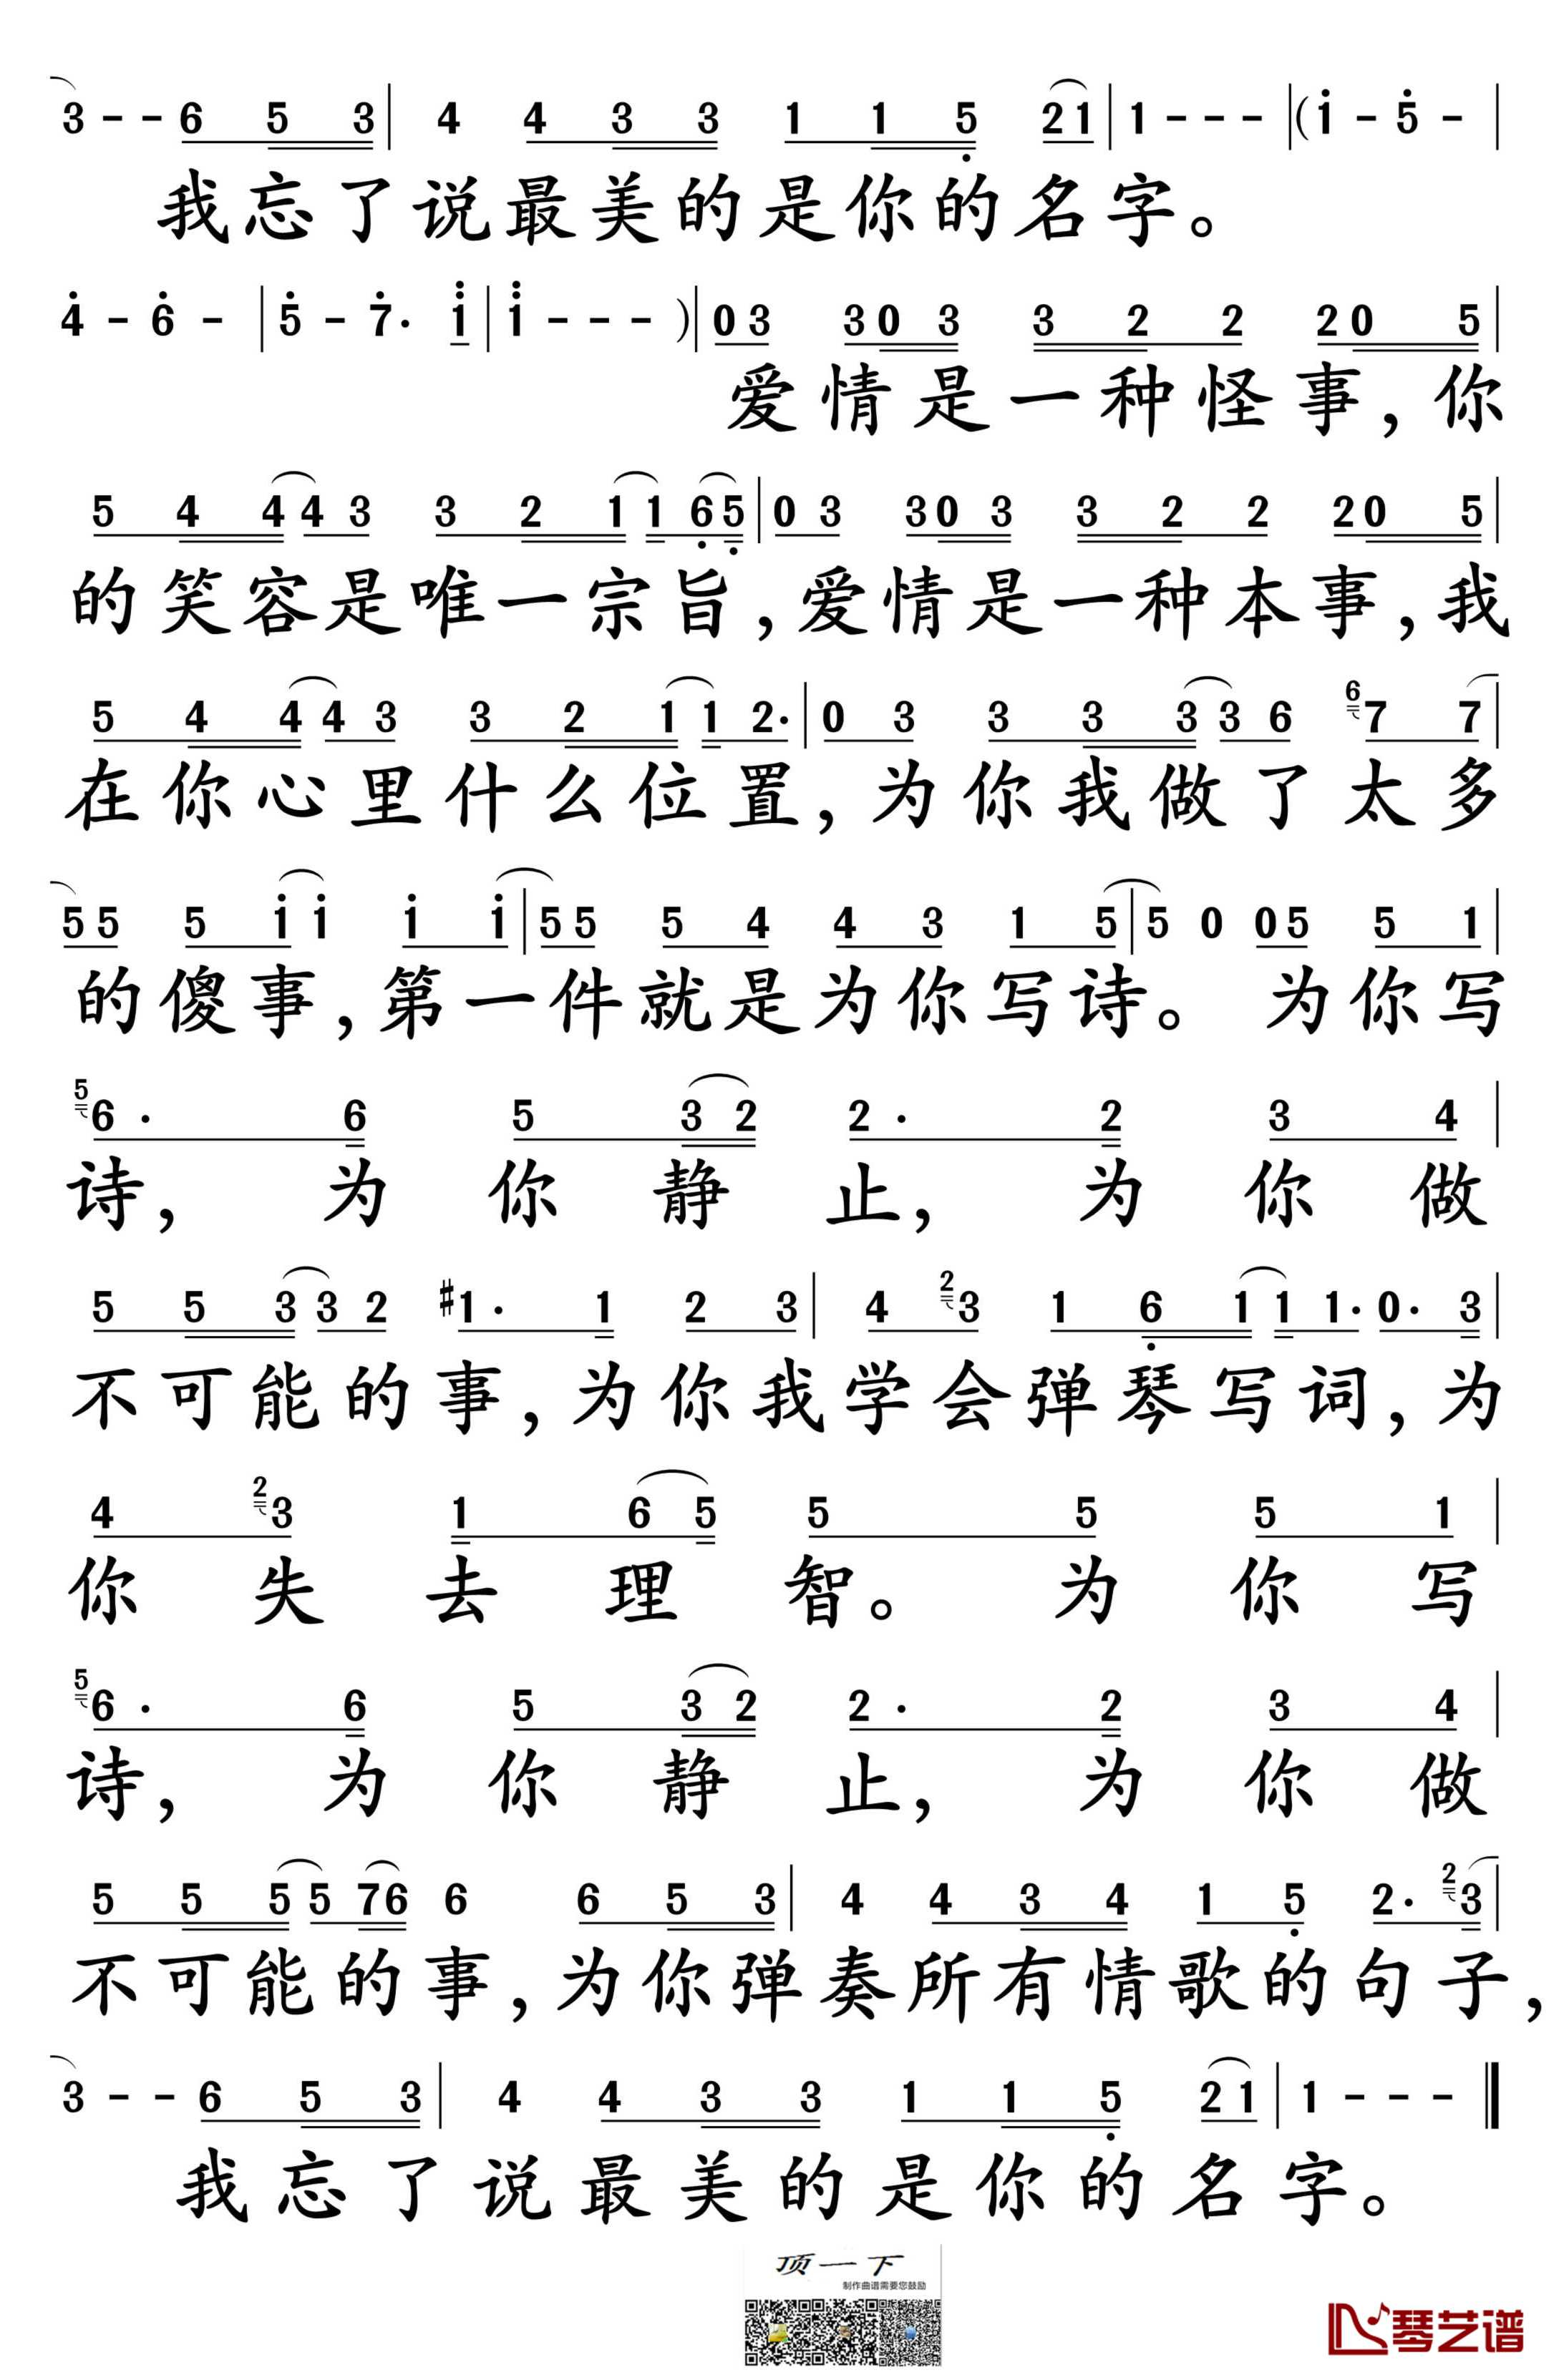 3 - - 6 5 3 | 4 4 3 3 1 1 5 2 1 | 1 - - - | ( 1 - 5 - |
我忘了说最美的是你的名字。
4 - 6 - | 5 - 7 · 1 | 1 - - - ) | 0 3 3 0 3 3 2 2 2 0 5 |
爱情是一种怪事，你
5 4 4 4 3 3 2 1 1 6 5 | 0 3 3 0 3 3 2 2 2 0 5 |
的笑容是唯一宗旨，爱情是一种本事，我
5 4 4 4 3 3 2 1 1 2 · | 0 3 3 3 3 3 6 6 7 7 |
在你心里什么位置，为你我做了太多
5 5 5 i i i i | 5 5 5 4 4 3 1 5 | 5 0 0 5 5 1 |
的傻事，第一件就是为你写诗。为你写
5 6 · 6 5 3 2 2 · 2 3 4 |
诗，为你静止，为你做
5 5 3 3 2 #1 · 1 2 3 | 4 2 3 1 6 1 1 1 · 0 · 3 |
不可能的事，为你我学会弹琴写词，为
4 2 3 1 6 5 5 5 5 1 |
你失去理智。为你写
5 6 · 6 5 3 2 2 · 2 3 4 |
诗，为你静止，为你做
5 5 5 5 7 6 6 6 5 3 | 4 4 3 4 1 5 2 · 2 3 |
不可能的事，为你弹奏所有情歌的句子，
3 - - 6 5 3 | 4 4 3 3 1 1 5 2 1 | 1 - - - ‖
我忘了说最美的是你的名字。
顶一下
制作曲谱需要您鼓励
琴艺谱